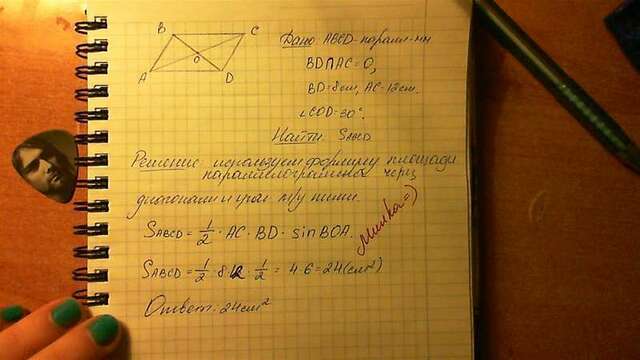 B C
A D
O
Дано: ABCD-паралл-мм
BD∩AC=O,
BD=8см, AC=12см.
∠COD=30°.
Найти: SABCD
Решение: используем формулу площади
параллелограмма через
диагонали и угол м/у ними.
SABCD = 1/2 · AC · BD · sinBOA.
Милка=)
SABCD = 1/2 · 8 · 12 · 1/2 = 4·6=24(см²)
Ответ: 24см²